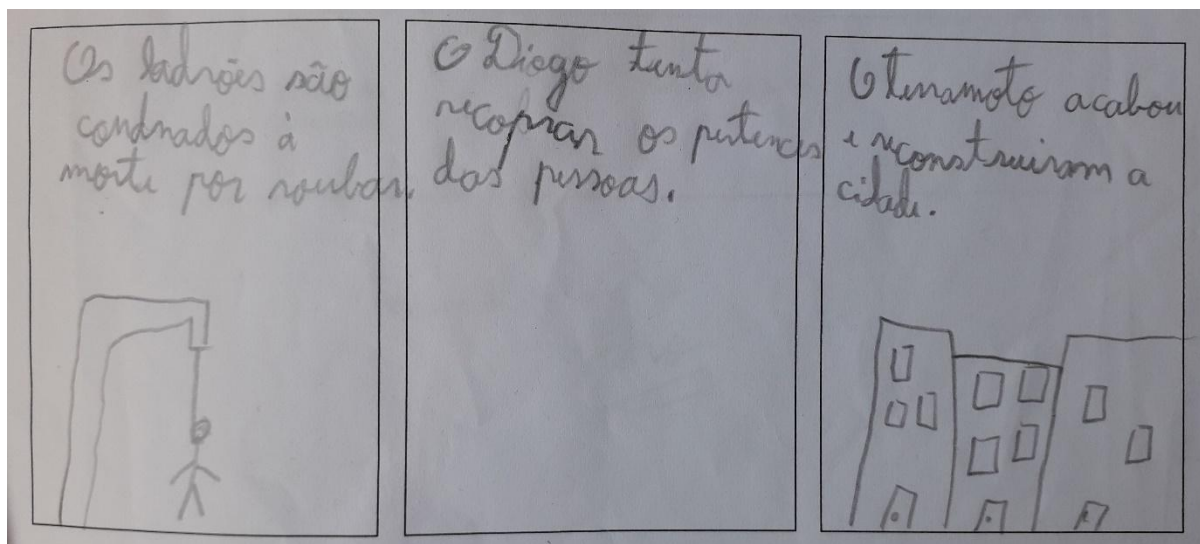 Os ladrões são
condnados à
morte por roubar.
O Diogo tenta
recoprar os pertences
das pessoas.
O terramoto acabou
e reconstruiram a
cidade.